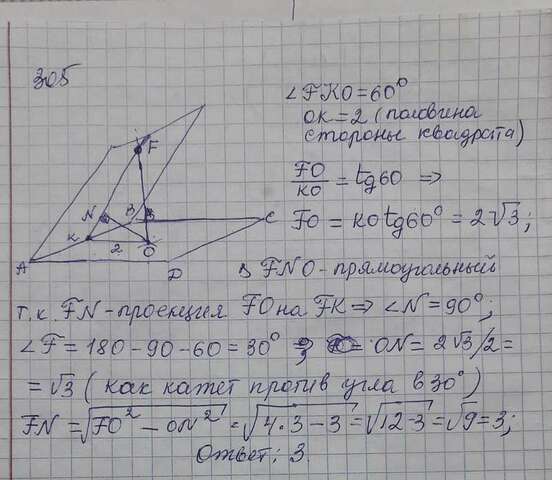 305
∠FKO=60°
OK=2 (половина
стороны квадрата)
FO/KO = tg60 ⇒
FO = KO tg60° = 2√3;
F
N
B
B
C
K
2
O
A
D
В FNO-прямоугольный
т.к. FN-проекция FO на FK ⇒ ∠N=90°;
∠F=180-90-60=30° ⇒ ON=2√3/2=
=√3 (как катет против угла в 30°)
FN=√FO²-ON²=√4·3-3=√12-3=√9=3;
Ответ: 3.